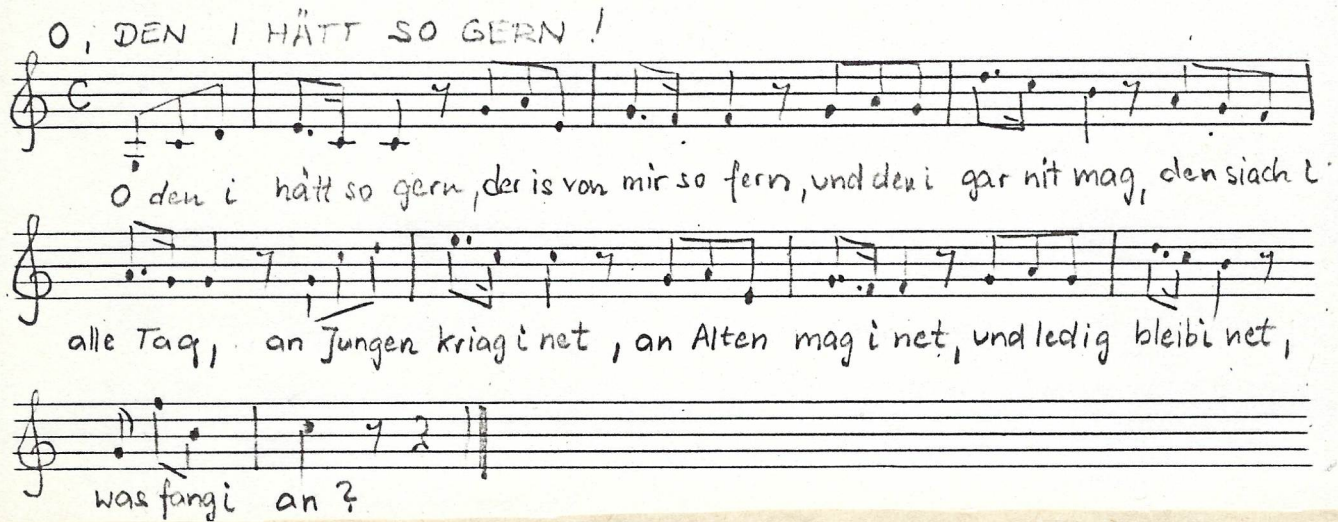 O, DEN I HÄTT SO GERN!
O den i hätt so gern, der is von mir so fern, und den i gar nit mag, den siach i
alle Tag, an Jungen kriag i net, an Alten mag i net, und ledig bleib i net,
was fang i an?